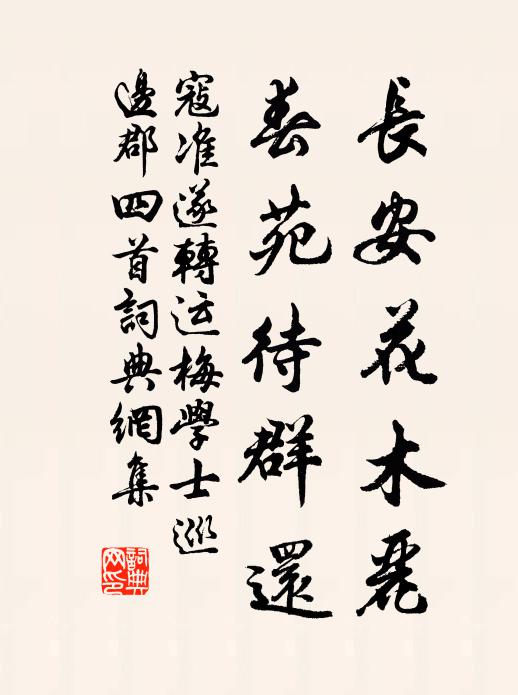 長安花木麗
春苑待群還
寇准遂轉运梅學士巡
邊郡四首詞典網集
詞典网印